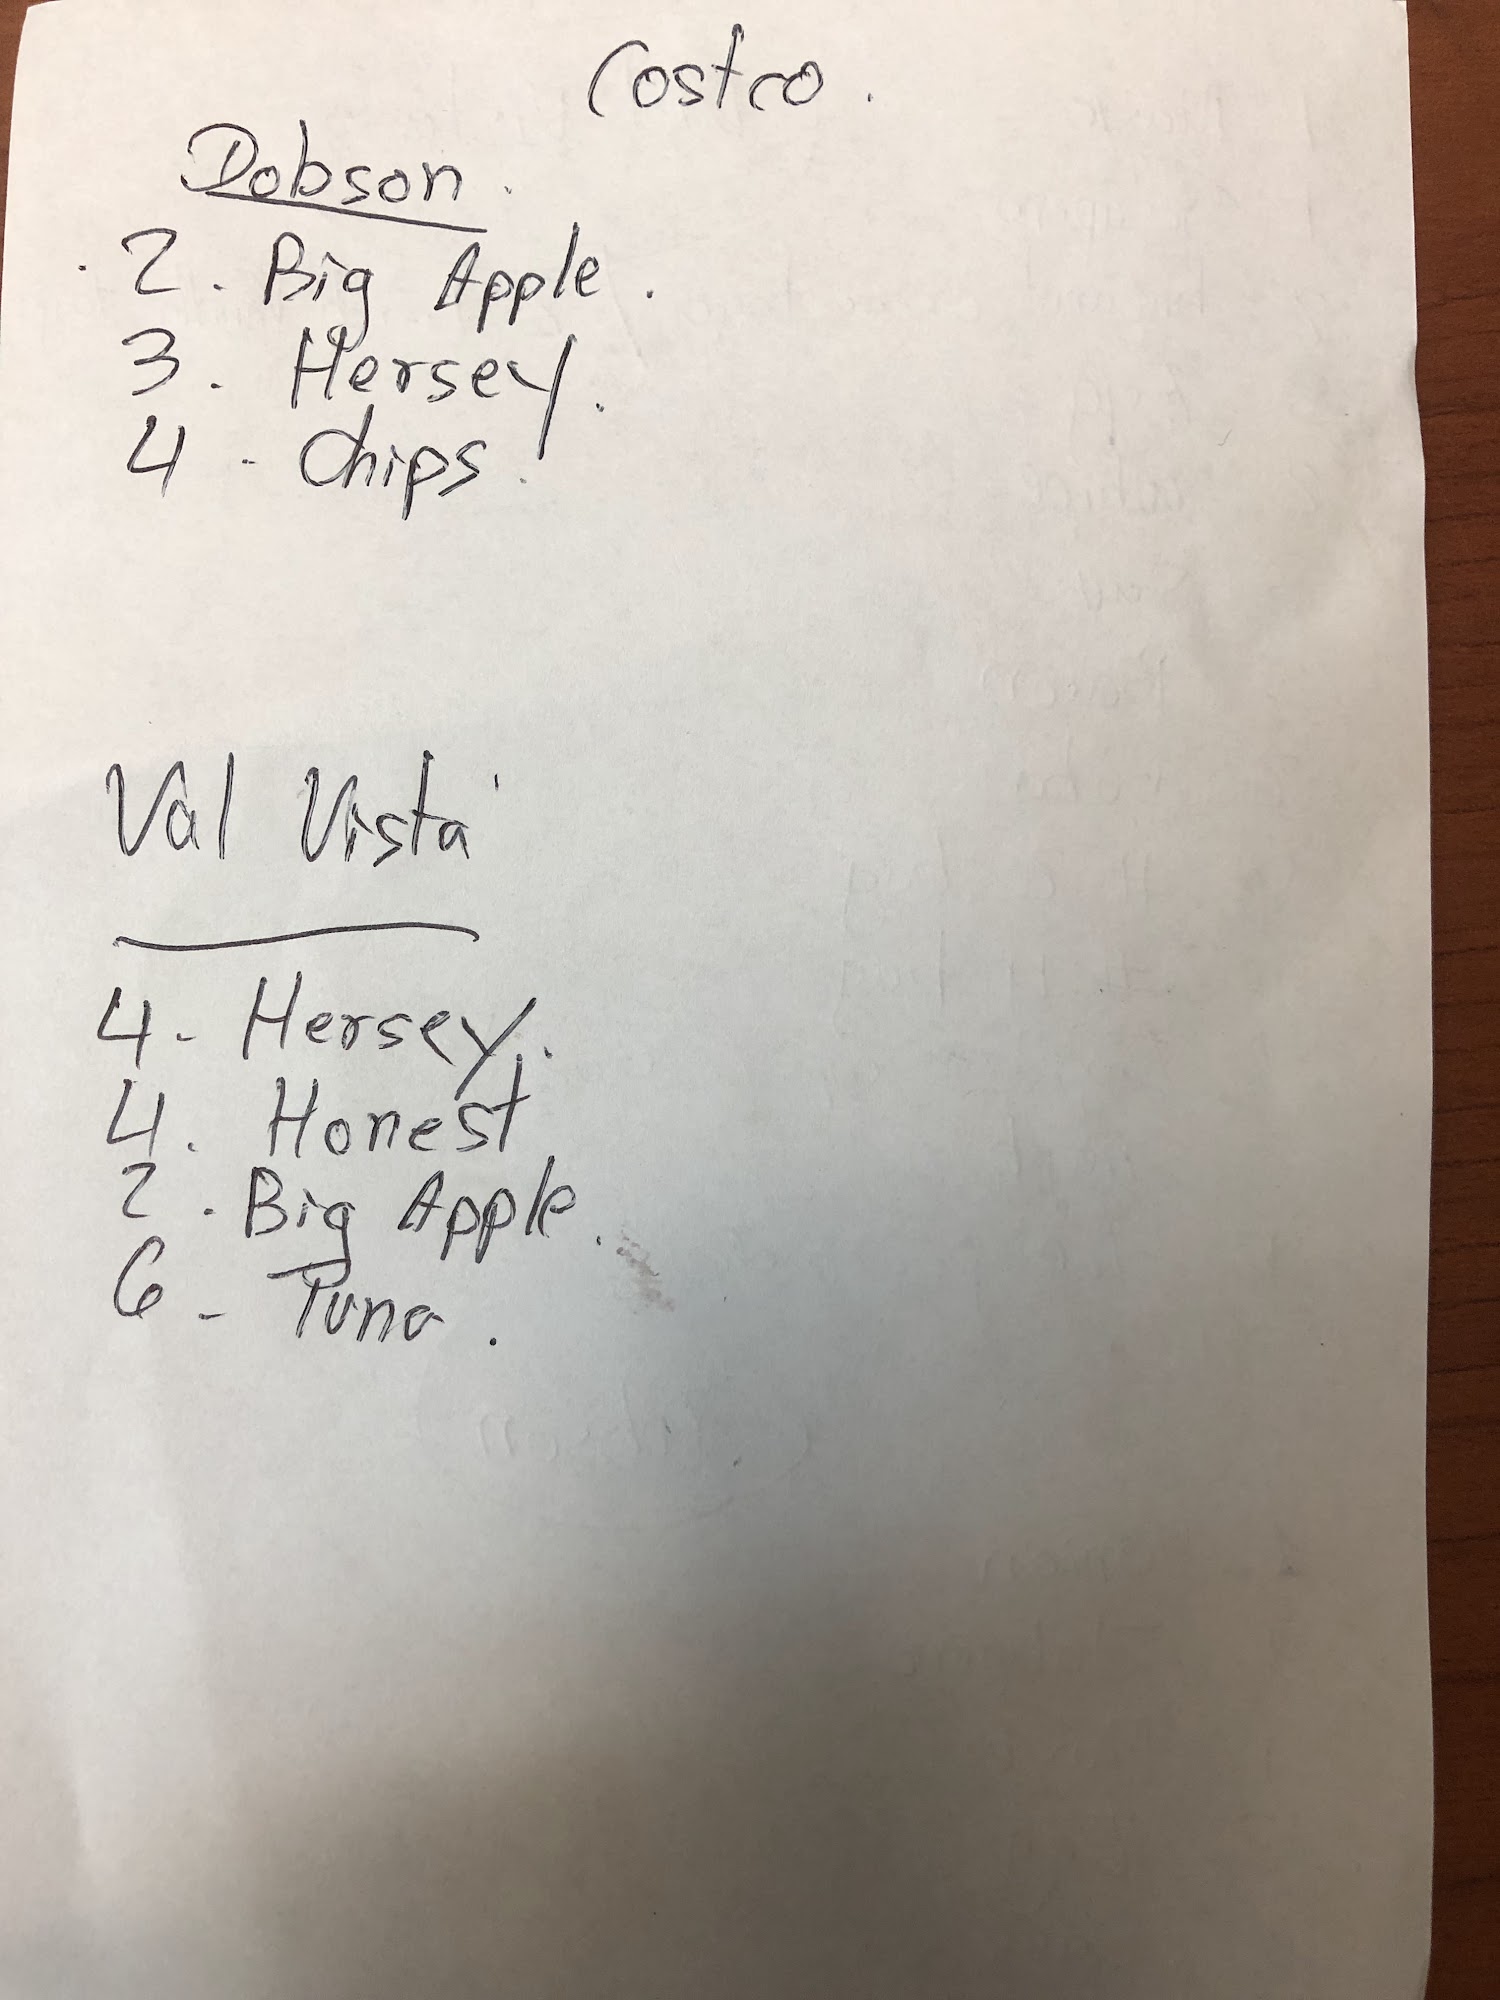 Costco.
Dobson.
2. Big Apple.
3. Hersey.
4 - Chips.
Val Vista
4 - Hersey.
4. Honest
2. Big Apple.
6 - Tuna.